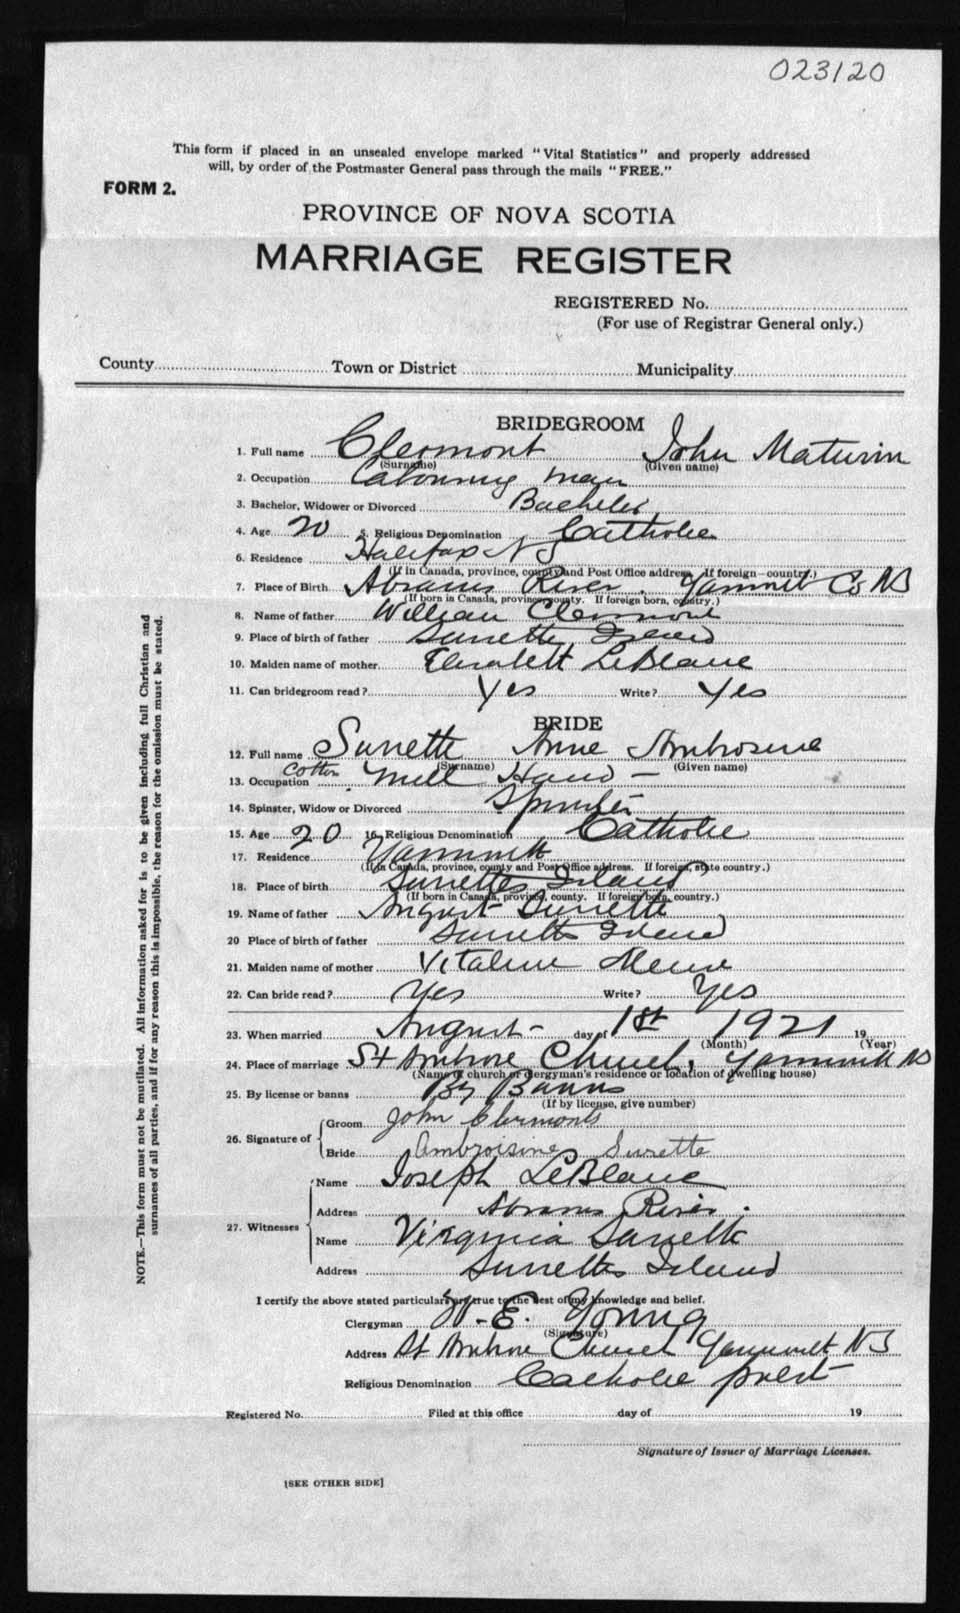 023120
This form if placed in an unsealed envelope marked "Vital Statistics" and properly addressed
will, by order of the Postmaster General pass through the mails "FREE."
FORM 2.
PROVINCE OF NOVA SCOTIA
MARRIAGE REGISTER
REGISTERED No.
(For use of Registrar General only.)
County Town or District Municipality
BRIDEGROOM
1. Full name Clermont John Maturin
(Surname) (Given name)
2. Occupation Labouring man
3. Bachelor, Widower or Divorced Bachelor
4. Age 20 5. Religious Denomination Catholic
6. Residence Halifax NS
(If in Canada, province, county and Post Office address. If foreign country.)
7. Place of Birth Abrams River. Yarmouth Co NS
(If born in Canada, province, county. If foreign born, country.)
8. Name of father William Clermont
9. Place of birth of father Surette Island
10. Maiden name of mother Elizabeth LeBlanc
11. Can bridegroom read? Yes Write? Yes
BRIDE
12. Full name Surette Anne Ambrosine
(Surname) (Given name)
13. Occupation Cotton Mill Hand
14. Spinster, Widow or Divorced Spinster
15. Age 20 16. Religious Denomination Catholic
17. Residence Yarmouth
(If in Canada, province, county and Post Office address. If foreign, state country.)
18. Place of birth Surettes Island
(If born in Canada, province, county. If foreign born, country.)
19. Name of father August Surette
20 Place of birth of father Surettes Island
21. Maiden name of mother Vitaline Meuse
22. Can bride read? Yes Write? Yes
23. When married August day of 1st 1921 19
(Month) (Year)
24. Place of marriage St Ambrose Church, Yarmouth NS
(Name of church or clergyman's residence or location of dwelling house)
25. By license or banns By Banns
(If by license, give number)
26. Signature of Groom John Clermont
Bride Ambroisine Surette
27. Witnesses Name Joseph LeBlanc
Address Abrams River.
Name Virginia Surette
Address Surettes Island
I certify the above stated particulars are true to the best of my knowledge and belief.
Clergyman W. E. Young
(Signature)
Address St Ambrose Church Yarmouth NS
Religious Denomination Catholic priest
Registered No. Filed at this office day of 19
Signature of Issuer of Marriage Licenses.
[SEE OTHER SIDE]
NOTE.—This form must not be mutilated. All information asked for is to be given including full Christian and
surnames of all parties, and if for any reason this is impossible, the reason for the omission must be stated.